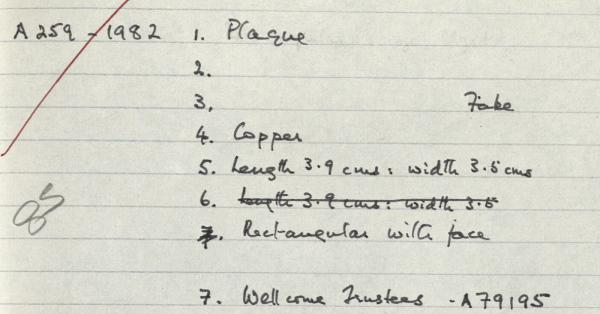 A 259 - 1982 1. Plaque
2.
3. Fake
4. Copper
5. Length 3.9 cms : width 3.5 cms
6. Length 3.9 cms : width 3.5
7. Rectangular with face
7. Wellcome Trustees - A79195